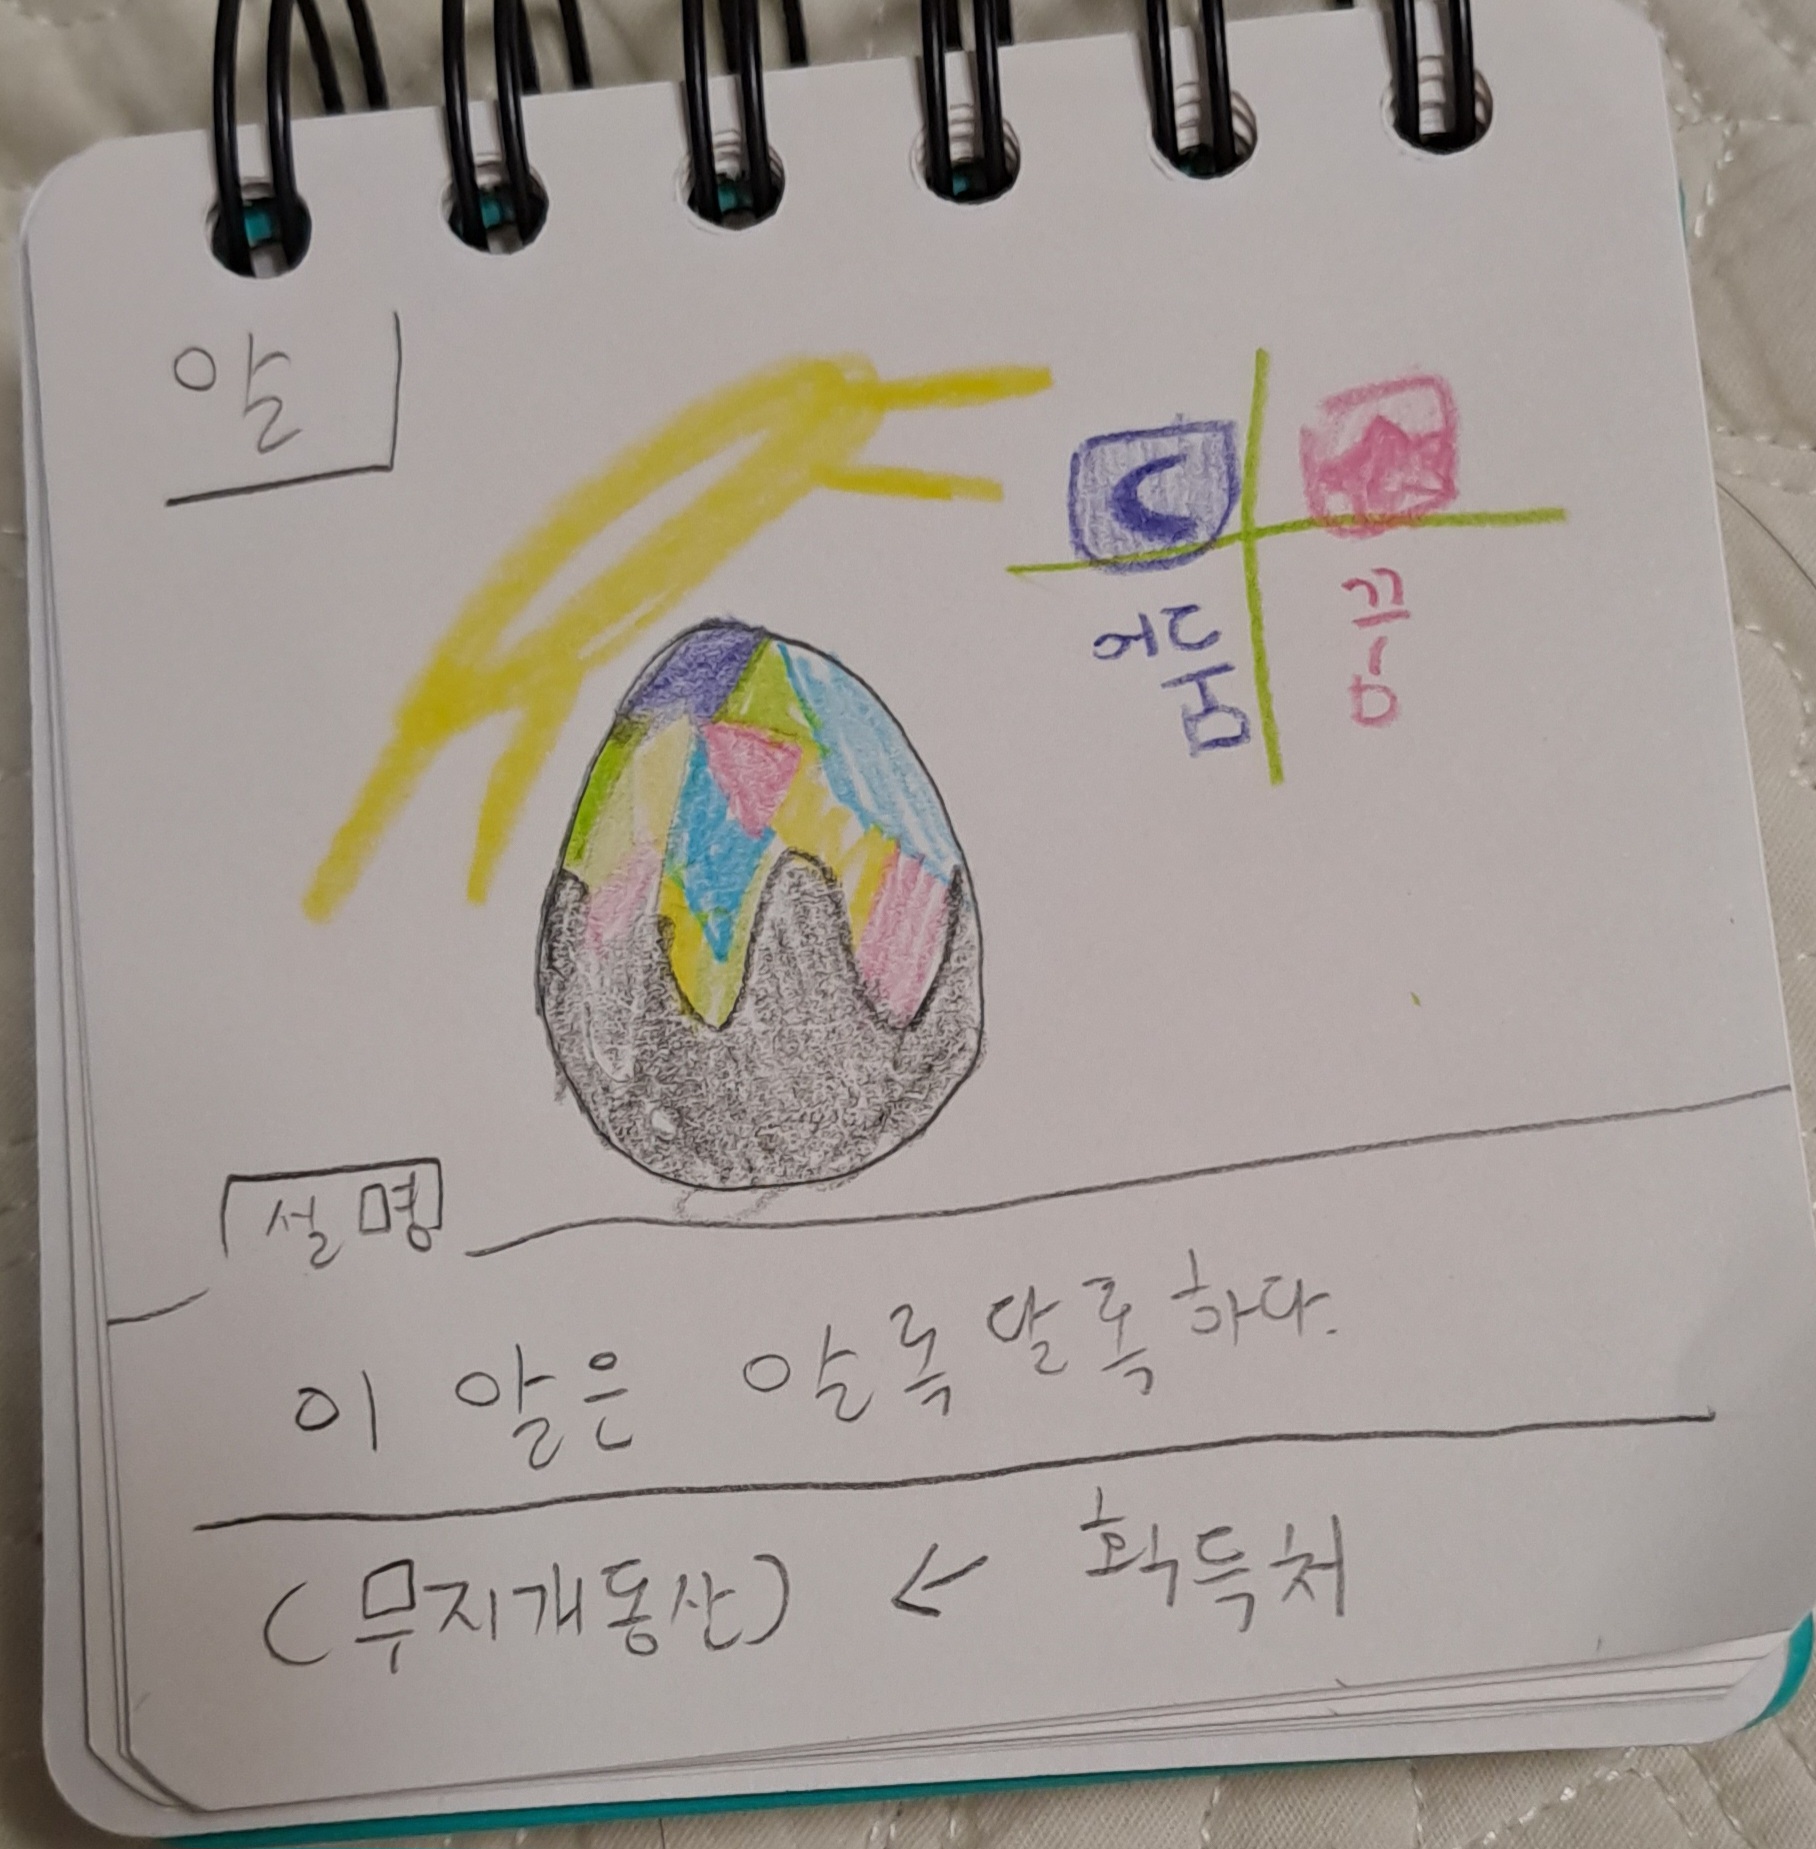 알
어둠
꿈
설명
이 알은 알록달록하다.
(무지개동산) ← 획득처